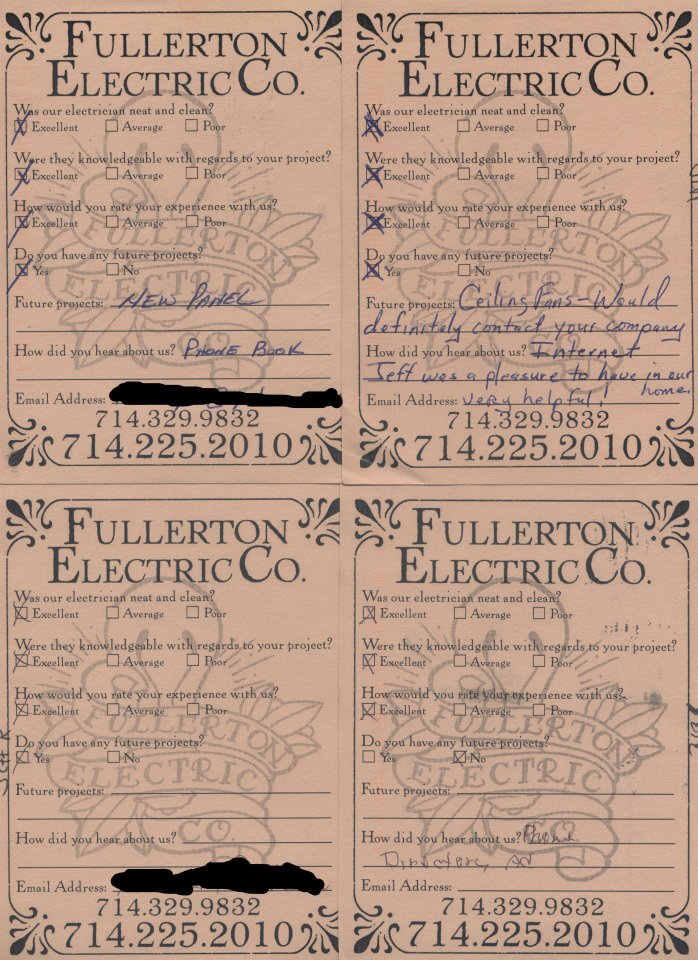 FULLERTON
ELECTRIC CO.
Was our electrician neat and clean?
Excellent Average Poor
Were they knowledgeable with regards to your project?
Excellent Average Poor
How would you rate your experience with us?
Excellent Average Poor
Do you have any future projects?
Yes No
Future projects: NEW PANEL
How did you hear about us? PHONE BOOK
Email Address:
714.329.9832
714.225.2010
FULLERTON
ELECTRIC CO.
Was our electrician neat and clean?
Excellent Average Poor
Were they knowledgeable with regards to your project?
Excellent Average Poor
How would you rate your experience with us?
Excellent Average Poor
Do you have any future projects?
Yes No
Future projects: Ceiling Fans - Would
definitely contact your company
How did you hear about us? Internet
Jeff was a pleasure to have in our
home.
Email Address: very helpful!
714.329.9832
714.225.2010
FULLERTON
ELECTRIC CO.
Was our electrician neat and clean?
Excellent Average Poor
Were they knowledgeable with regards to your project?
Excellent Average Poor
How would you rate your experience with us?
Excellent Average Poor
Do you have any future projects?
Yes No
Future projects:
How did you hear about us?
Email Address:
714.329.9832
714.225.2010
FULLERTON
ELECTRIC CO.
Was our electrician neat and clean?
Excellent Average Poor
Were they knowledgeable with regards to your project?
Excellent Average Poor
How would you rate your experience with us?
Excellent Average Poor
Do you have any future projects?
Yes No
Future projects:
How did you hear about us? Phone
Directory Ad
Email Address:
714.329.9832
714.225.2010
FULLERTON
ELECTRIC
CO.
FULLERTON
ELECTRIC
CO.
FULLERTON
ELECTRIC
CO.
FULLERTON
ELECTRIC
CO.